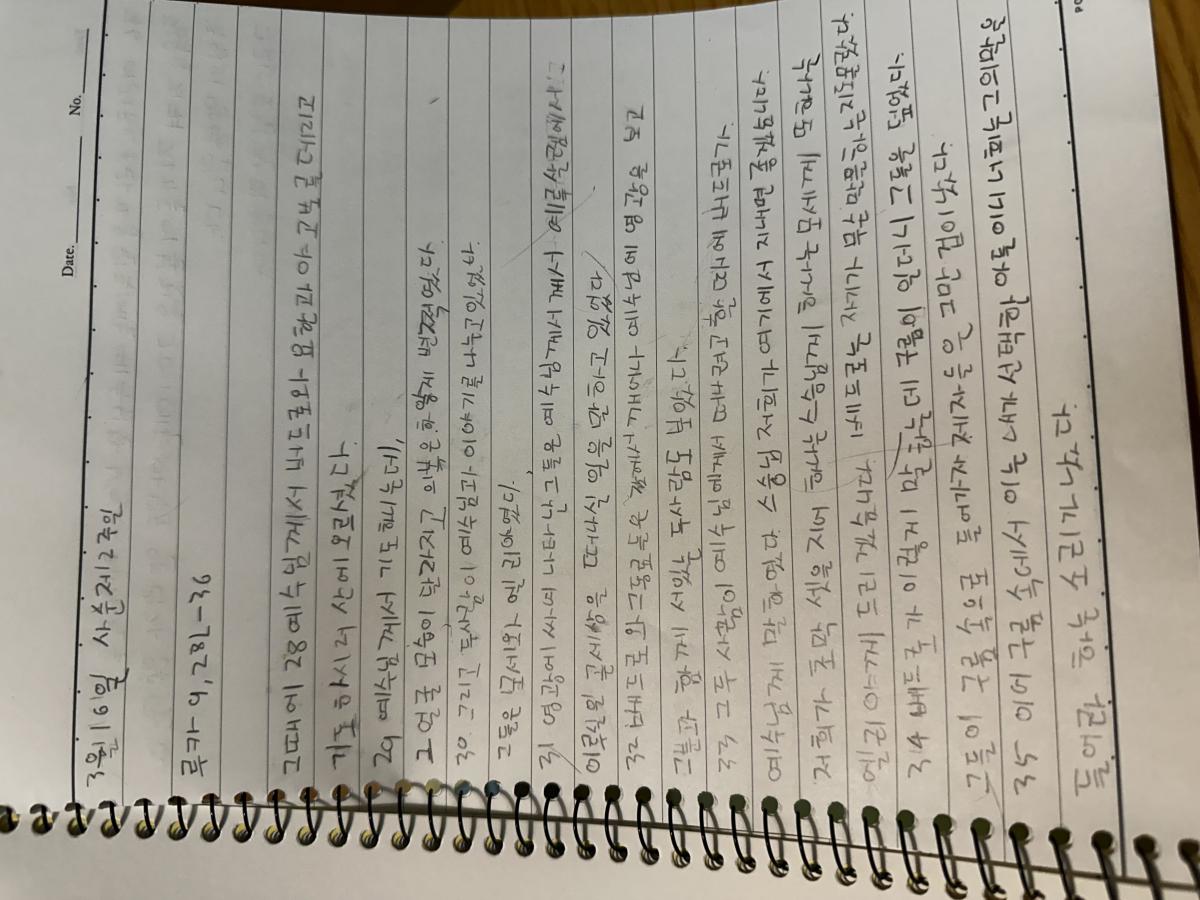 Date. No.
3월 16일 사순제2주일
루카 9,28ㄴ-36
그때에 28예수님께서 베드로와 요한과 야고보를 데리고
기도하시러 산에 오르셨다.
29 예수님께서 기도하시는데,
그 얼굴 모습이 달라지고 의복은 하얗게 번쩍였다.
30. 그리고 두사람이 예수님과 이야기를 나누고 있었다.
그들은 모세와 엘리야였다.
31 영광에 싸여 나타난 그들은 예수님께서 예루살렘에서
이루실 일
세상을 떠나실 일을 말하고 있었다
32 베드로와 그 동료들은 잠에 예수님의 영광을 보고
그분과 함께 서 있는 두사람도 보았다.
33 그 두사람이 예수님에게서 떠나려고 할때에 베드로가
예수님께 말하였다. 스승님, 저희가 여기에서 지내면 좋겠습니다
저희가 초막 셋을 지어 하나는 스승님께 하나는 모세께 또하나는
엘리야께 드리겠습니다 베드로는 자기가 무슨말을 하는지도 몰랐다
34 베드로가 이렇게 말하는데 구름이 일더니 그들을 덮었다.
그들이 구름 속으로 들어가자 제자들은 그만 겁이났다.
35 이어 구름속에서 이는 내가 선택한 아들이니 너희는 그의말을
들어라 하는 소리가났다.